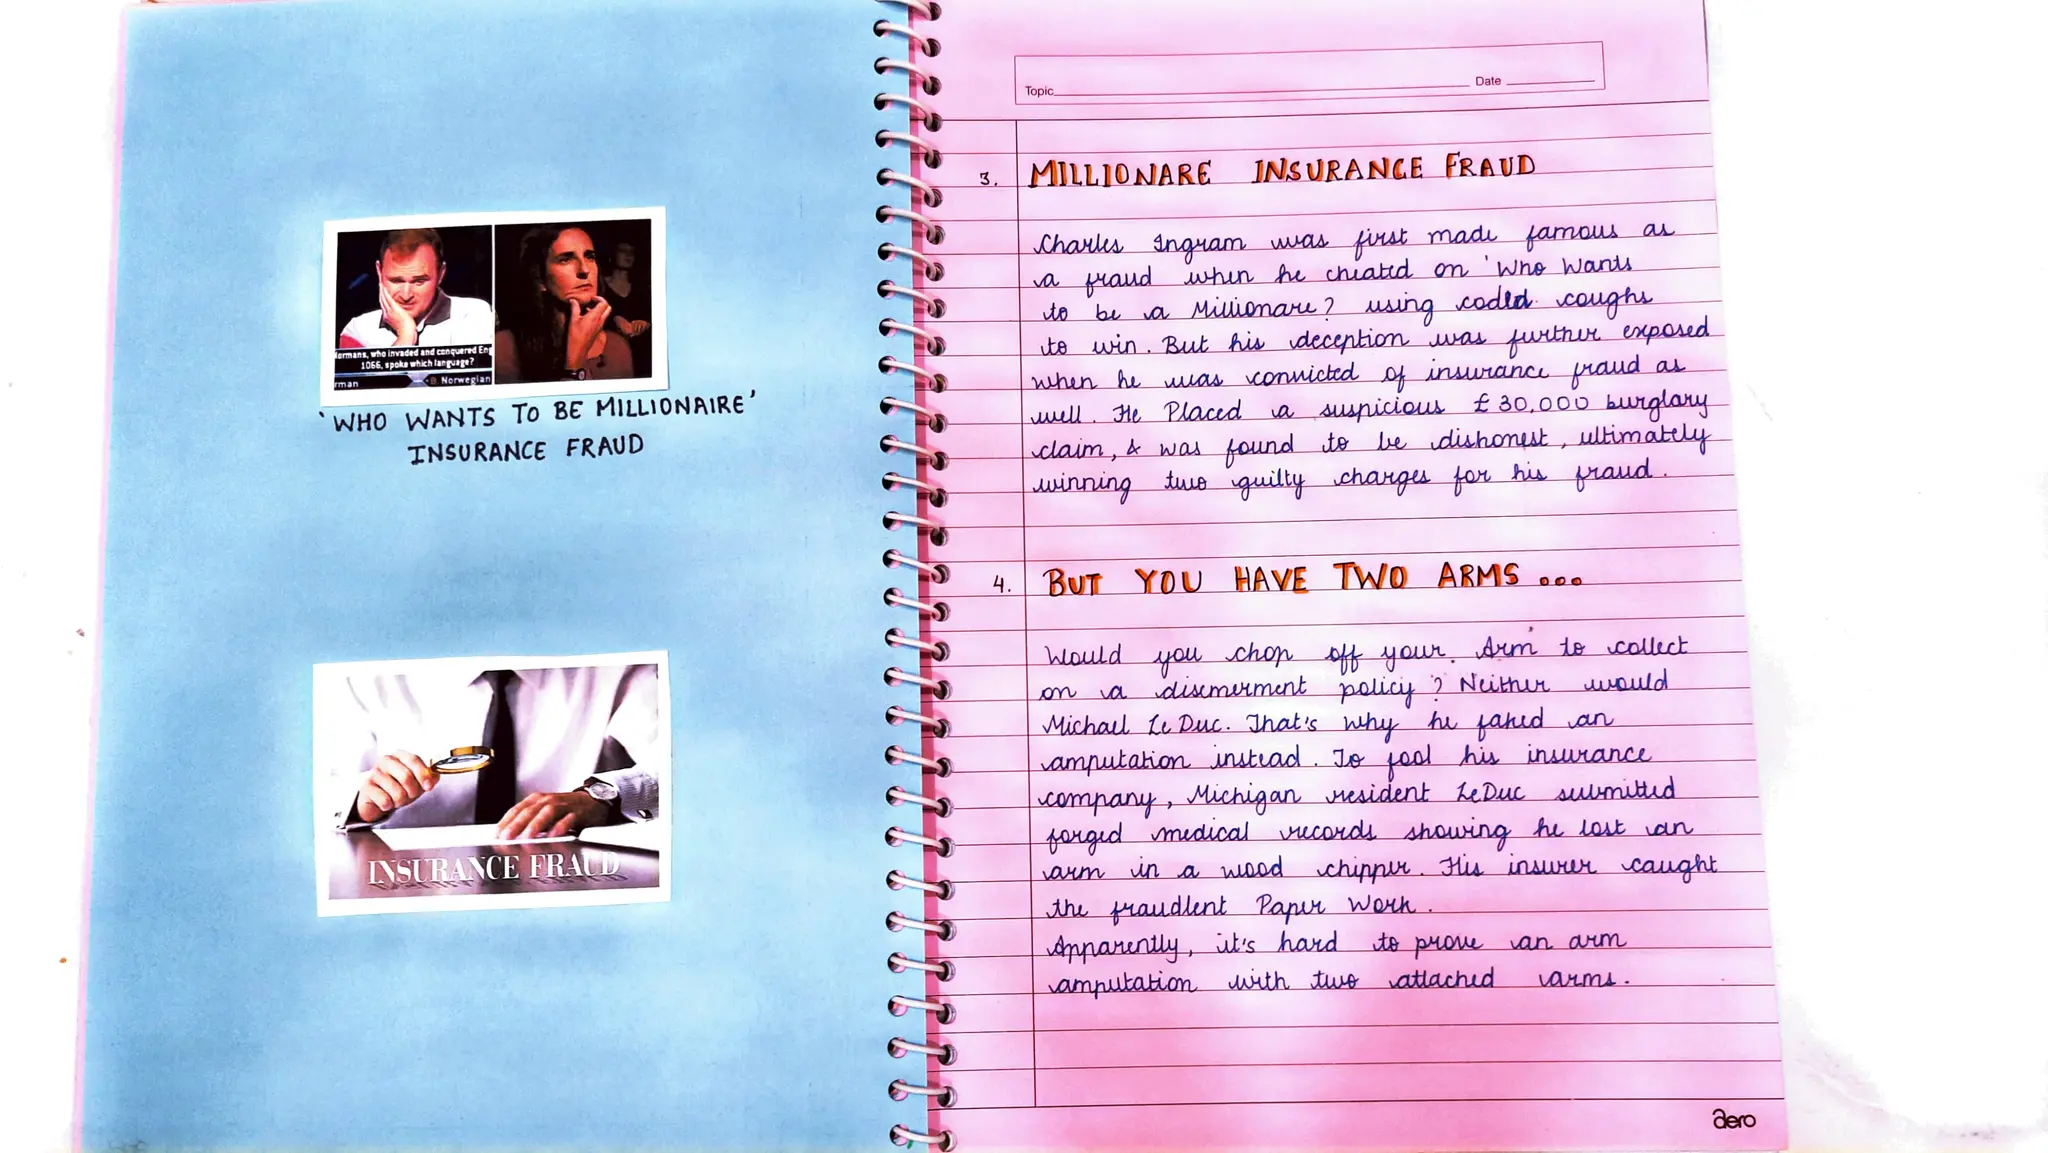 ormans, who invaded and conquered Eng
1066, spoke which language?
rman
Norwegian
'WHO WANTS TO BE MILLIONAIRE'
INSURANCE FRAUD
INSURANCE FRAUD
Topic Date
3. MILLIONARE INSURANCE FRAUD
Charles Ingram was first made famous as
a fraud when he cheated on 'Who Wants
to be a Millionare? using coded coughs
to win. But his deception was further exposed
when he was convicted of insurance fraud as
well. He Placed a suspicious £30,000 burglary
claim, & was found to be dishonest, ultimately
winning two guilty charges for his fraud.
4. BUT YOU HAVE TWO ARMS...
Would you chop off your Arm to collect
on a dismerment policy? Neither would
Michael Le Duc. That's why he faked an
amputation instead. To fool his insurance
company, Michigan resident LeDuc submitted
forged medical records showing he lost an
arm in a wood chipper. His insurer caught
the fraudlent Paper Work.
Apparently, it's hard to prove an arm
amputation with two attached arms.
aero